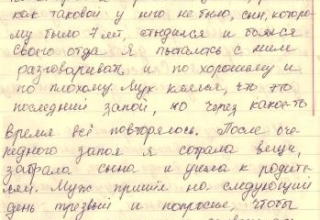 как таковой у него не было, сын, которо-
му было 7 лет, стыдился и боялся
своего отца. Я пыталась с ним
разговаривать и по хорошему и
по плохому. Муж клялся, что это
последний запой, но через какое-то
время всё повторялось. После оче-
редного запоя я собрала вещи,
забрала сына и ушла к родите-
лям. Муж пришёл на следующий
день трезвый и попросил, чтобы